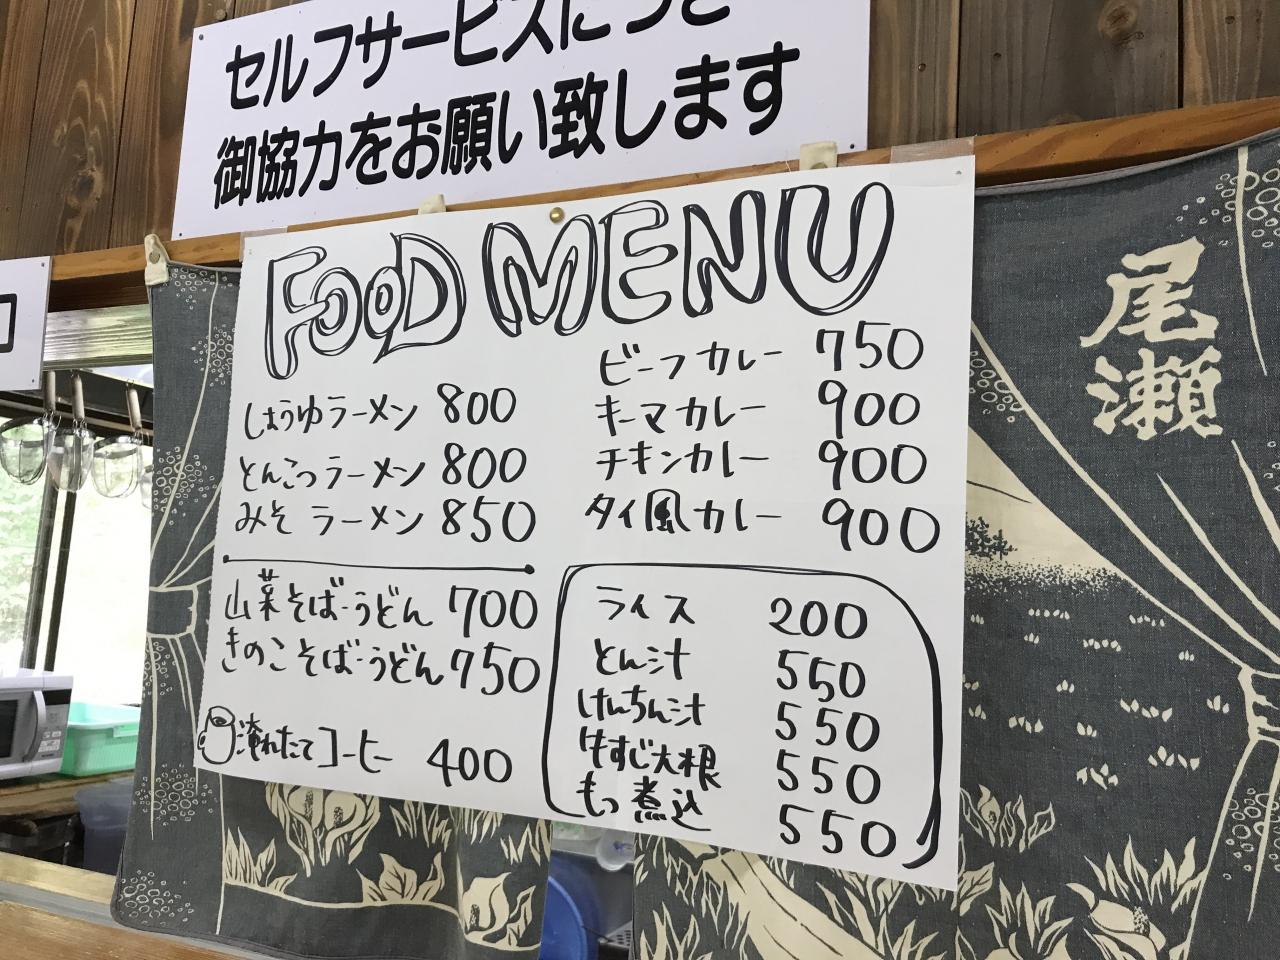 セルフサービスにつき
御協力をお願い致します
FOOD MENU
しょうゆラーメン 800
とんこつラーメン 800
みそラーメン 850
山菜そば・うどん 700
きのこそば・うどん 750
淹れたてコーヒー 400
ビーフカレー 750
キーマカレー 900
チキンカレー 900
タイ風カレー 900
ライス 200
とん汁 550
けんちん汁 550
牛すじ大根 550
もつ煮込 550
尾瀬